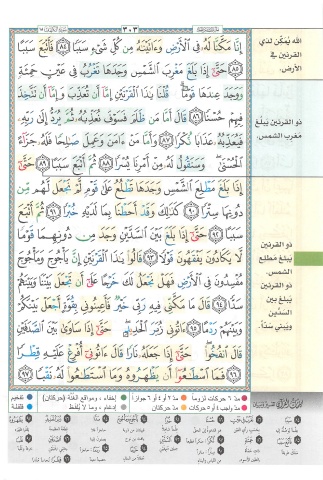 ٣٠٣
إِنَّا مَكَّنَّا لَهُۥ فِى ٱلْأَرْضِ وَءَاتَيْنَٰهُ مِن كُلِّ شَىْءٍ سَبَبًا ﴿٨٤﴾ فَأَتْبَعَ سَبَبًا
﴿٨٥﴾ حَتَّىٰٓ إِذَا بَلَغَ مَغْرِبَ ٱلشَّمْسِ وَجَدَهَا تَغْرُبُ فِى عَيْنٍ حَمِئَةٍ
وَوَجَدَ عِندَهَا قَوْمًا ۗ قُلْنَا يَٰذَا ٱلْقَرْنَيْنِ إِمَّآ أَن تُعَذِّبَ وَإِمَّآ أَن تَتَّخِذَ
فِيهِمْ حُسْنًا ﴿٨٦﴾ قَالَ أَمَّا مَن ظَلَمَ فَسَوْفَ نُعَذِّبُهُۥ ثُمَّ يُرَدُّ إِلَىٰ رَبِّهِۦ
فَيُعَذِّبُهُۥ عَذَابًا نُّكْرًا ﴿٨٧﴾ وَأَمَّا مَنْ ءَامَنَ وَعَمِلَ صَٰلِحًا فَلَهُۥ جَزَآءً
ٱلْحُسْنَىٰ ۖ وَسَنَقُولُ لَهُۥ مِنْ أَمْرِنَا يُسْرًا ﴿٨٨﴾ ثُمَّ أَتْبَعَ سَبَبًا ﴿٨٩﴾ حَتَّىٰٓ
إِذَا بَلَغَ مَطْلِعَ ٱلشَّمْسِ وَجَدَهَا تَطْلُعُ عَلَىٰ قَوْمٍ لَّمْ نَجْعَل لَّهُم مِّن
دُونِهَا سِتْرًا ﴿٩٠﴾ كَذَٰلِكَ وَقَدْ أَحَطْنَا بِمَا لَدَيْهِ خُبْرًا ﴿٩١﴾ ثُمَّ أَتْبَعَ
سَبَبًا ﴿٩٢﴾ حَتَّىٰٓ إِذَا بَلَغَ بَيْنَ ٱلسَّدَّيْنِ وَجَدَ مِن دُونِهِمَا قَوْمًا
لَّا يَكَادُونَ يَفْقَهُونَ قَوْلًا ﴿٩٣﴾ قَالُوا۟ يَٰذَا ٱلْقَرْنَيْنِ إِنَّ يَأْجُوجَ وَمَأْجُوجَ
مُفْسِدُونَ فِى ٱلْأَرْضِ فَهَلْ نَجْعَلُ لَكَ خَرْجًا عَلَىٰٓ أَن تَجْعَلَ بَيْنَنَا وَبَيْنَهُمْ
سَدًّا ﴿٩٤﴾ قَالَ مَا مَكَّنِّى فِيهِ رَبِّى خَيْرٌ فَأَعِينُونِى بِقُوَّةٍ أَجْعَلْ بَيْنَكُمْ
وَبَيْنَهُمْ رَدْمًا ﴿٩٥﴾ ءَاتُونِى زُبَرَ ٱلْحَدِيدِ ۖ حَتَّىٰٓ إِذَا سَاوَىٰ بَيْنَ ٱلصَّدَفَيْنِ
قَالَ ٱنفُخُوا۟ ۖ حَتَّىٰٓ إِذَا جَعَلَهُۥ نَارًا قَالَ ءَاتُونِىٓ أُفْرِغْ عَلَيْهِ قِطْرًا
﴿٩٦﴾ فَمَا ٱسْطَٰعُوٓا۟ أَن يَظْهَرُوهُ وَمَا ٱسْتَطَٰعُوا۟ لَهُۥ نَقْبًا ﴿٩٧﴾
الله يُمكّن لذي
القرنين في
الأرض.
ذو القرنين يبلغ
مغرب الشمس.
ذو القرنين
يبلغ مطلع
الشمس.
ذو القرنين
يبلغ بين
السدّين
ويبني سدّاً.
مدّ ٦ حركات لزوماً
مدّ ٢ أو ٤ أو ٦ جوازاً
إخفاء، ومواقع الغنّة (حركتان)
تفخيم
مدّ واجب ٤ أو ٥ حركات
مدّ حركتان
إدغام، وما لا يُلفظ
قلقلة